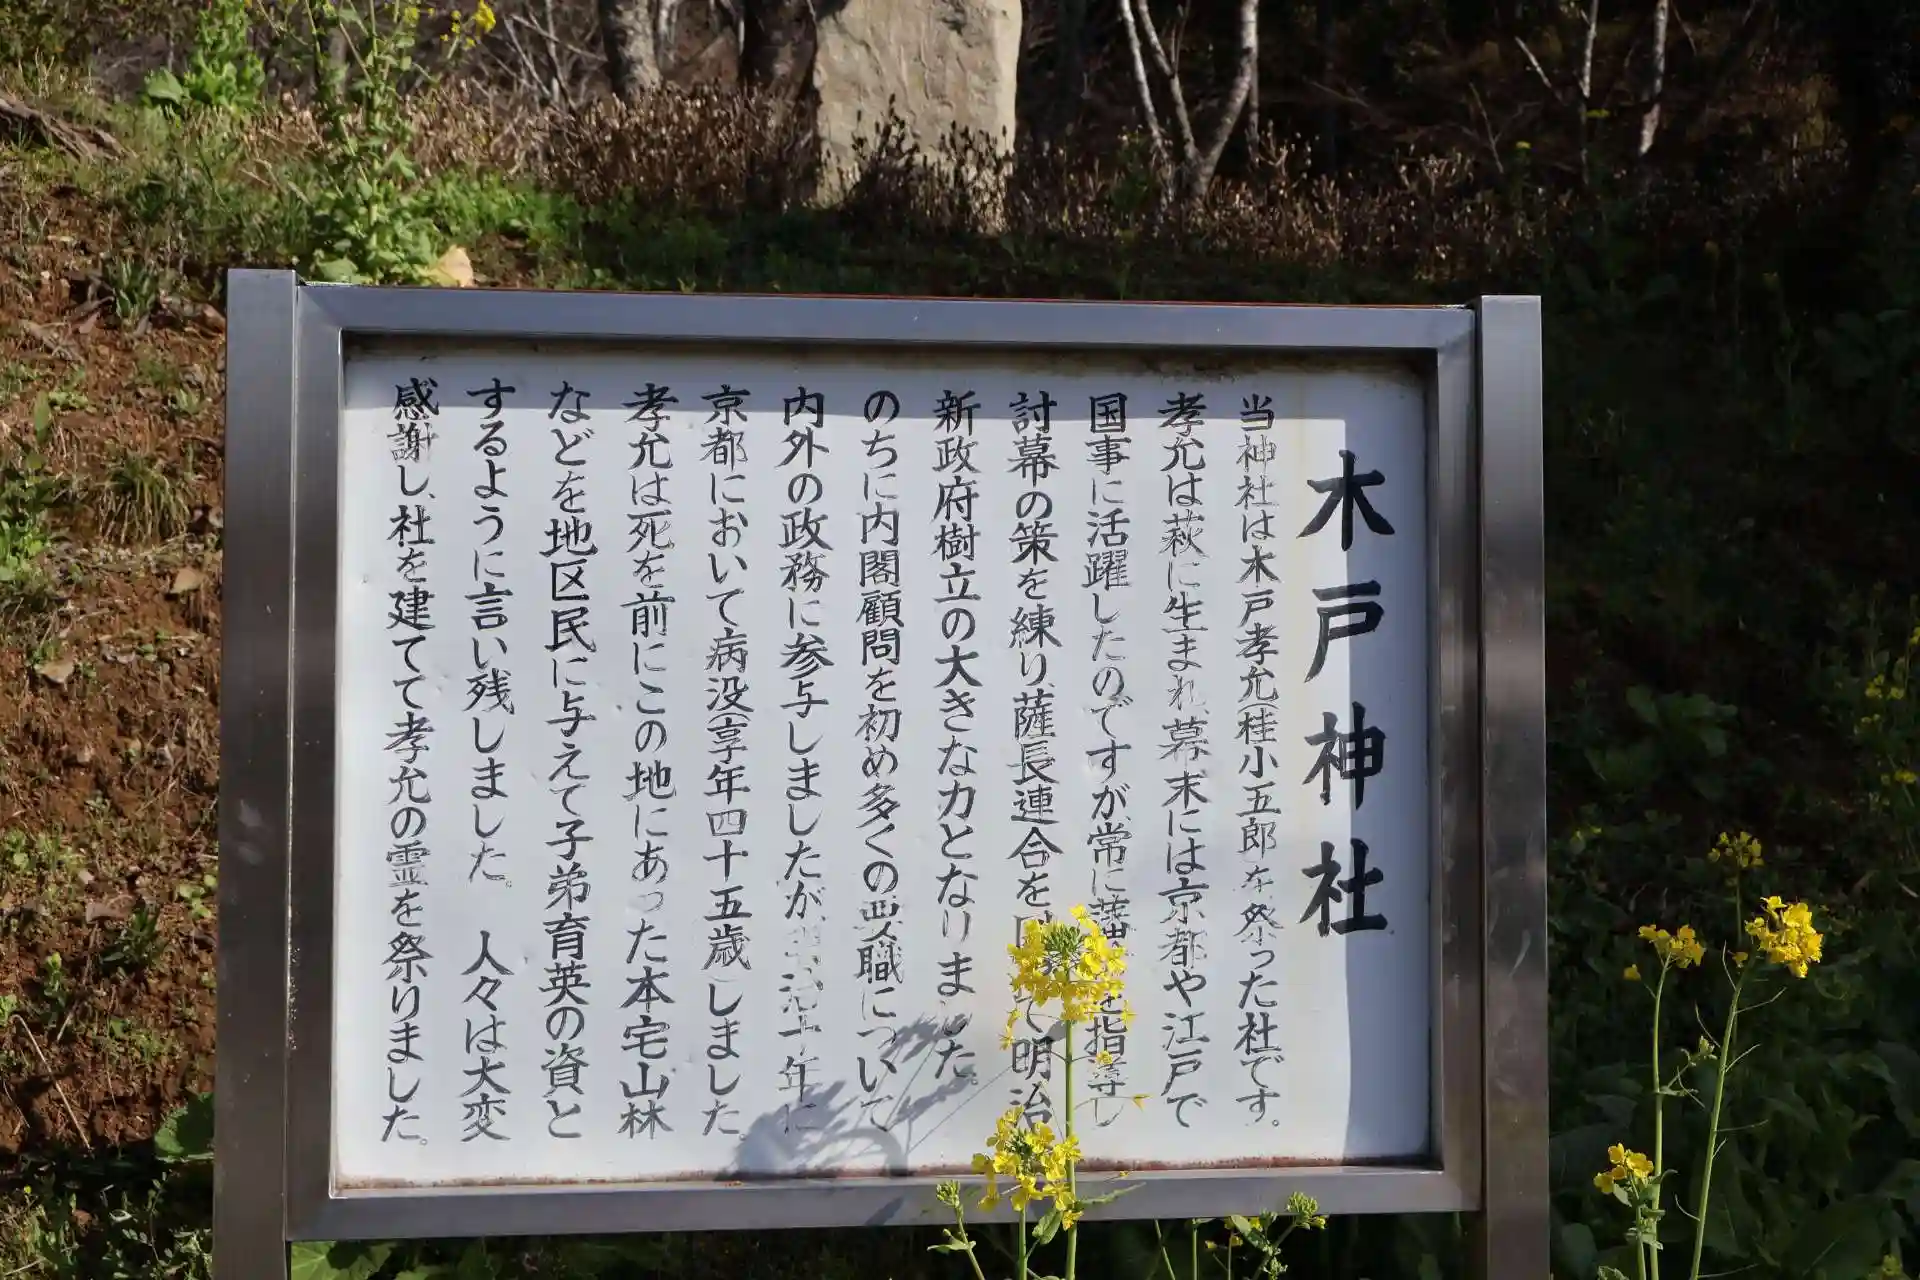 木戸神社
当神社は木戸孝允(桂小五郎)を祭った社です。
孝允は萩に生まれ、幕末には京都や江戸で
国事に活躍したのですが、常に藩を指導し
討幕の策を練り、薩長連合を て明治
新政府樹立の大きな力となりました。
のちに内閣顧問を初め多くの要職について
内外の政務に参与しましたが、明治十年に
京都において病没(享年四十五歳)しました。
孝允は死を前にこの地にあった本宅、山林
などを地区民に与えて子弟育英の資と
するように言い残しました。 人々は大変
感謝し、社を建てて孝允の霊を祭りました。